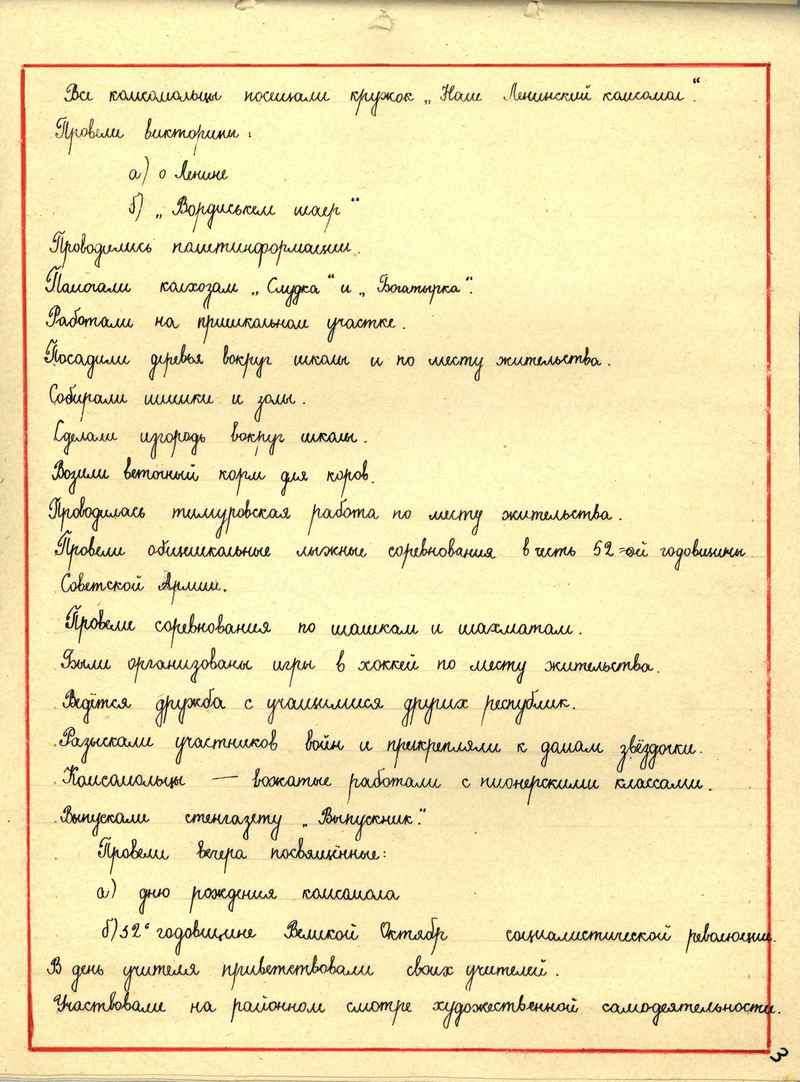 Все комсомольцы посещали кружок „Наш Ленинский комсомол“.
Провели викторины:
а) о Ленине
б) „Вордиськем шаер“
Проводились политинформации.
Помогали колхозам „Слудка“ и „Богатырка“.
Работали на пришкольном участке.
Посадили деревья вокруг школы и по месту жительства.
Собирали шишки и золы.
Сделали изгородь вокруг школы.
Возили веточный корм для коров.
Проводилась тимуровская работа по месту жительства.
Провели общешкольные лыжные соревнования в честь 52-ой годовщины
Советской Армии.
Провели соревнования по шашкам и шахматам.
Были организованы игры в хоккей по месту жительства.
Ведётся дружба с учащимися других республик.
Разыскали участников войн и прикрепляли к домам звёздочки.
Комсомольцы — вожатые работали с пионерскими классами.
Выпускали стенгазету „Выпускник“.
Провели вечера посвящённые:
а) дню рождения комсомола
б) 52ᵒ годовщине Великой Октябр социалистической революции.
В день учителя приветствовали своих учителей.
Участвовали на районном смотре художественной самодеятельности.
3